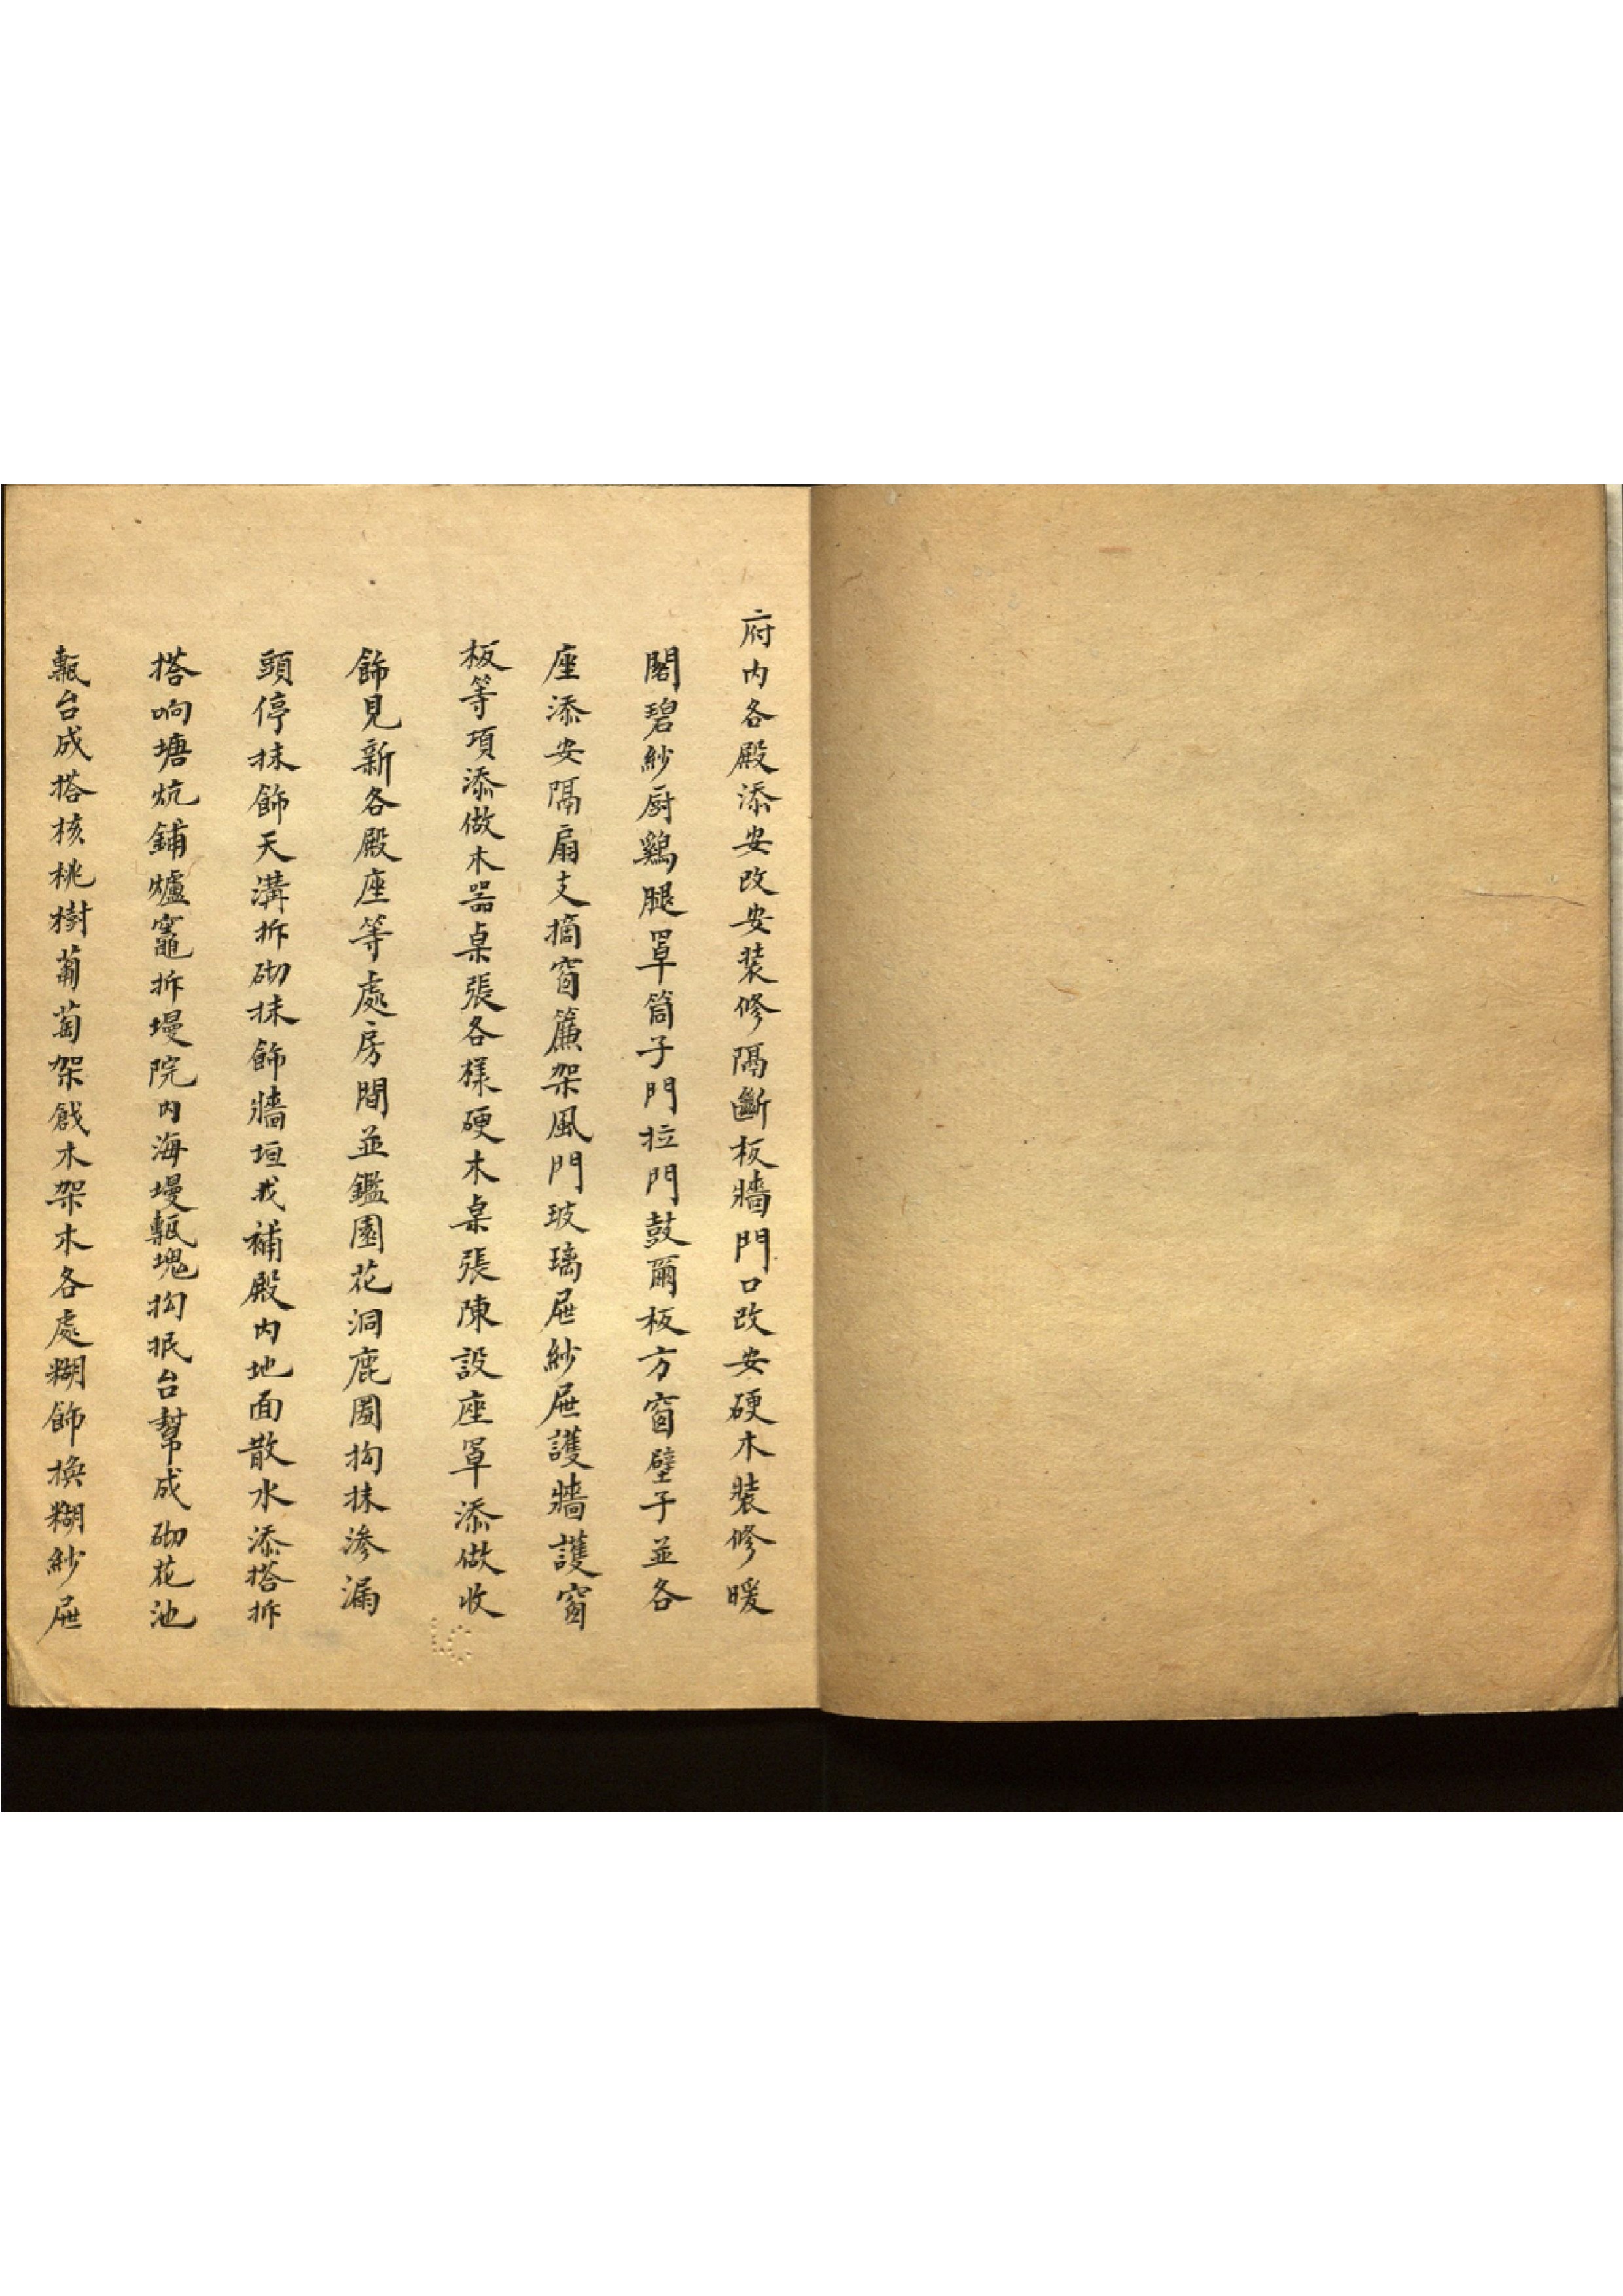 府内各殿添安改安装修隔斷板牆門口改安硬木裝修暖
閣碧紗厨鷄腿罩筒子門拉門鼓爾板方窗壁子並各
座添安隔扇支摘窗簾架風門玻璃屜紗屜護牆護窗
板等項添做木器桌張各樣硬木桌張陳設座罩添做收
飾見新各殿座等處房間並鑑園花洞鹿圈抅抹滲漏
頭停抹飾天溝拆砌抹飾牆垣找補殿内地面散水添搭拆
搭响塘炕鋪爐竈拆墁院内海墁甎塊抅抿台幫成砌花池
甎台成搭核桃樹葡萄架戧木架木各處糊飾換糊紗屜
LC